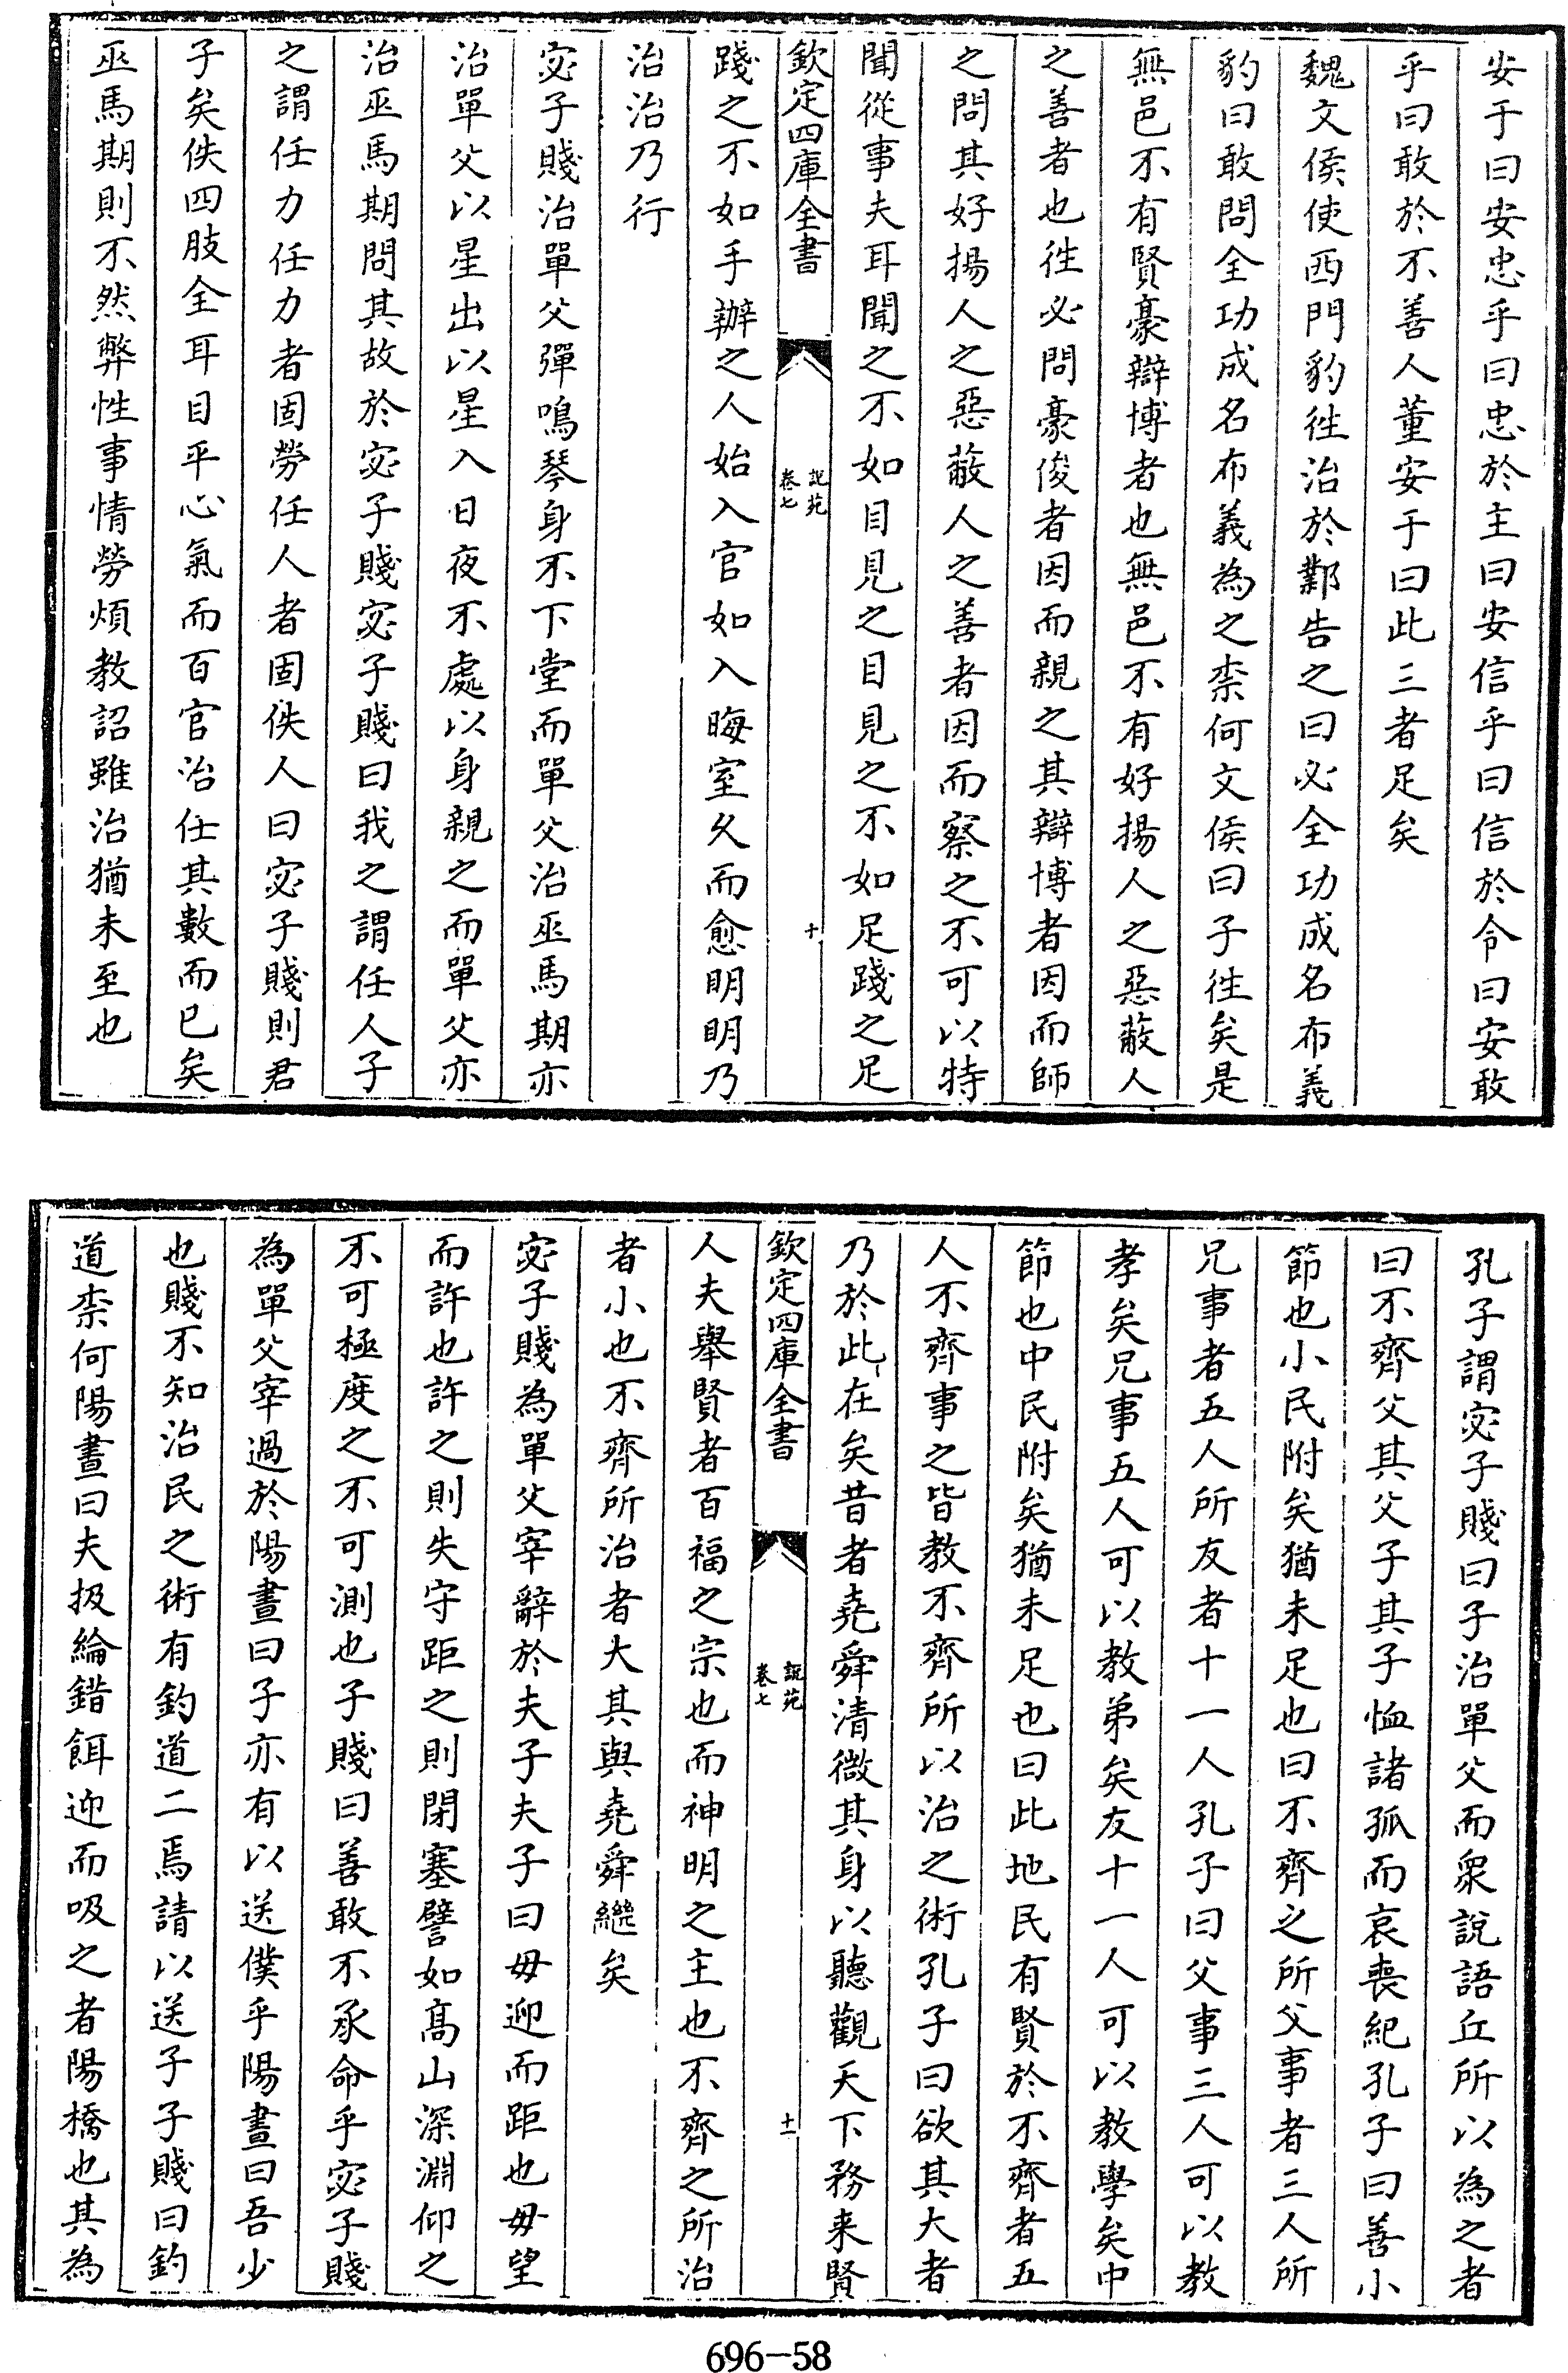 安于曰安忠乎曰忠於主曰安信乎曰信於令曰安敢
乎曰敢於不善人董安于曰此三者足矣
魏文侯使西門豹徃治於鄴告之曰必全功成名布義
豹曰敢問全功成名布義為之柰何文侯曰子徃矣是
無邑不有賢豪辯博者也無邑不有好揚人之惡蔽人
之善者也徃必問豪俊者因而親之其辯博者因而師
之問其好揚人之惡蔽人之善者因而察之不可以特
聞從事夫耳聞之不如目見之目見之不如足踐之足
欽定四庫全書
說苑
卷七
十
踐之不如手辦之人始入官如入晦室久而愈明明乃
治治乃行
宓子賤治單父彈鳴琴身不下堂而單父治巫馬期亦
治單父以星出以星入日夜不處以身親之而單父亦
治巫馬期問其故於宓子賤宓子賤曰我之謂任人子
之謂任力任力者固勞任人者固佚人曰宓子賤則君
子矣佚四肢全耳目平心氣而百官治任其數而已矣
巫馬期則不然弊性事情勞煩教詔雖治猶未至也
孔子謂宓子賤曰子治單父而衆說語丘所以為之者
曰不齊父其父子其子恤諸孤而哀喪紀孔子曰善小
節也小民附矣猶未足也曰不齊之所父事者三人所
兄事者五人所友者十一人孔子曰父事三人可以教
孝矣兄事五人可以教弟矣友十一人可以教學矣中
節也中民附矣猶未足也曰此地民有賢於不齊者五
人不齊事之皆教不齊所以治之術孔子曰欲其大者
乃於此在矣昔者堯舜清微其身以聽觀天下務来賢
欽定四庫全書
說苑
卷七
十一
人夫舉賢者百福之宗也而神明之主也不齊之所治
者小也不齊所治者大其與堯舜繼矣
宓子賤為單父宰辭於夫子夫子曰毋迎而距也毋望
而許也許之則失守距之則閉塞譬如髙山深淵仰之
不可極度之不可測也子賤曰善敢不承命乎宓子賤
為單父宰過於陽晝曰子亦有以送僕乎陽晝曰吾少
也賤不知治民之術有釣道二焉請以送子子賤曰釣
道柰何陽晝曰夫扱綸錯餌迎而吸之者陽橋也其為
696-58